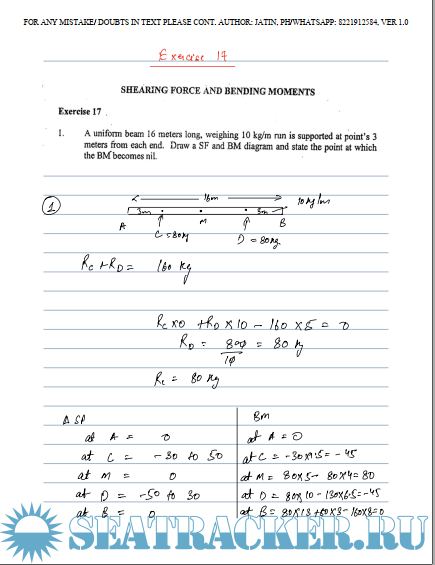 FOR ANY MISTAKE/ DOUBTS IN TEXT PLEASE CONT. AUTHOR: JATIN, PH/WHATSAPP: 8221912584, VER 1.0
Exercise 17
SHEARING FORCE AND BENDING MOMENTS
Exercise 17
1. A uniform beam 16 meters long, weighing 10 kg/m run is supported at point's 3
meters from each end. Draw a SF and BM diagram and state the point at which
the BM becomes nil.
16m
10 kg/m
1
3m
3m
A
M
B
C = 80kg
D = 80kg
Rc + RD = 160 kg
Rc x0 + RD x 10 - 160 x 5 = 0
RD = 800/10 = 80 kg
Rc = 80 kg
SF
at A = 0
at C = -30 to 50
at M = 0
at D = -50 to 30
at B = 0
BM
at A = 0
at C = -30x1.5 = -45
at M = 80x5 - 80x4 = 80
at D = 80x10 - 130x6.5 = -45
at B = 80x13 + 80x3 - 160x8 = 0
SEATRACKER.RU